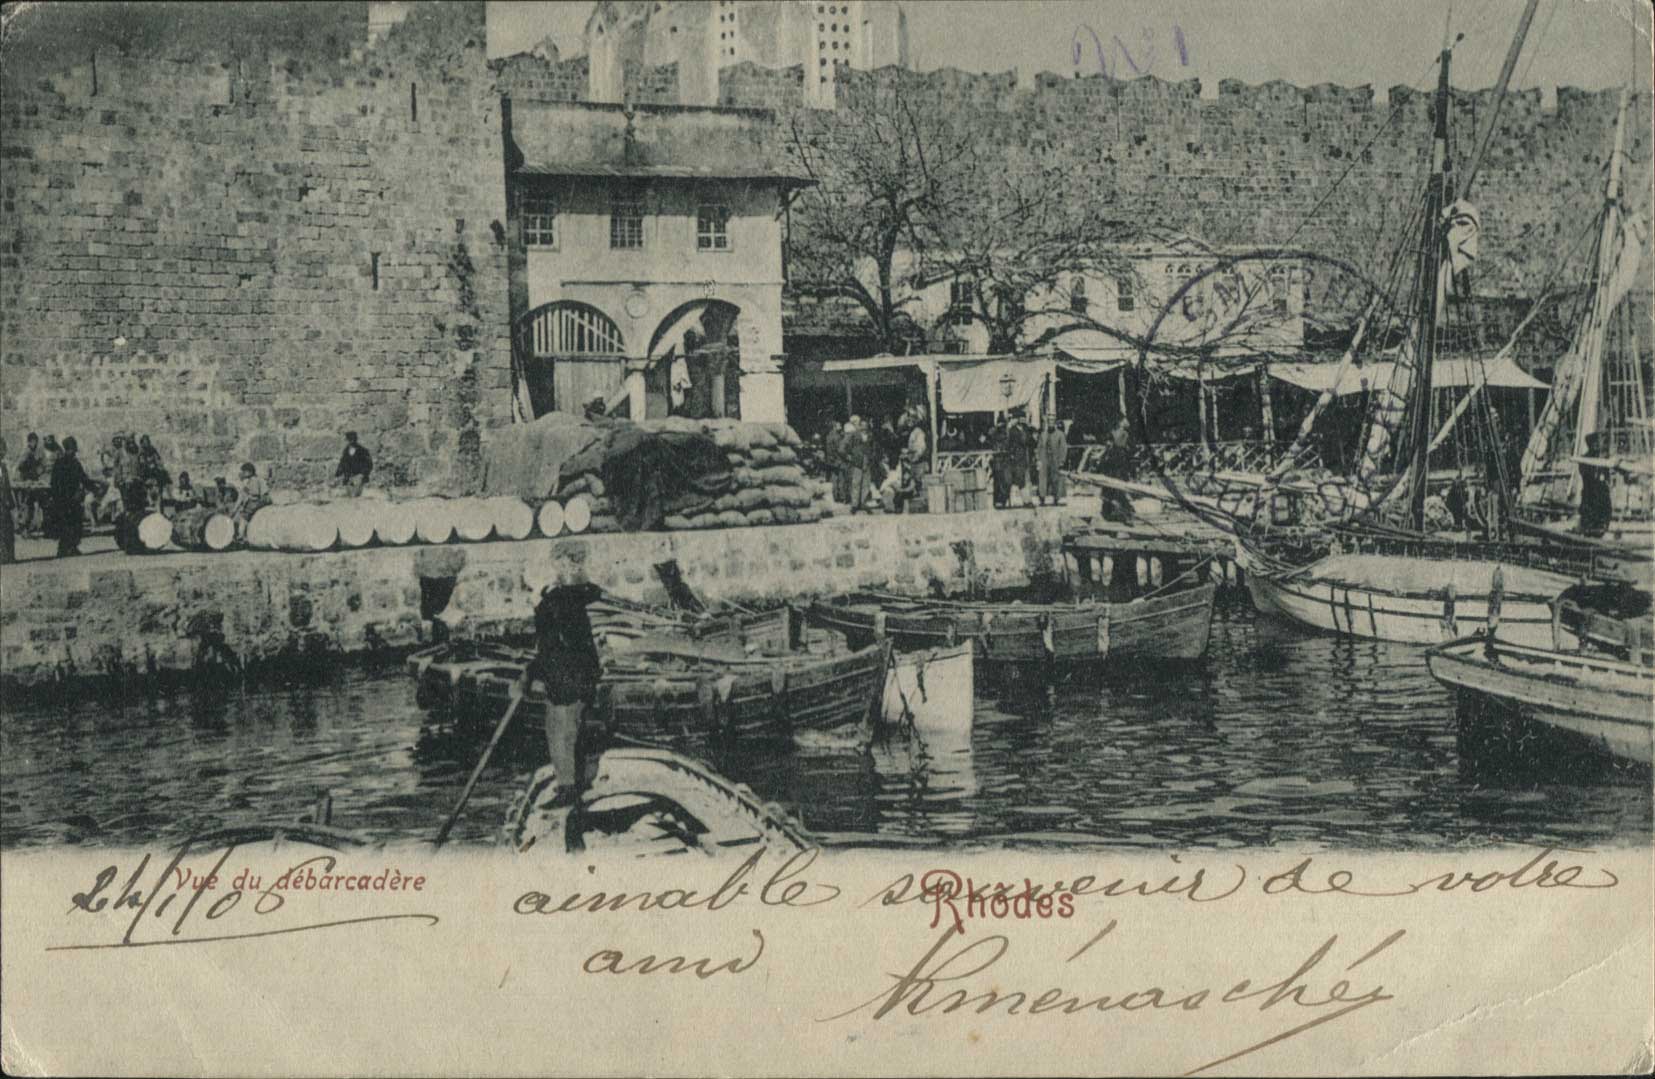 N: 1
SMYR
Vue du débarcadère
Rhodes
24/1/06 aimable souvenir de votre
ami
Kménasché